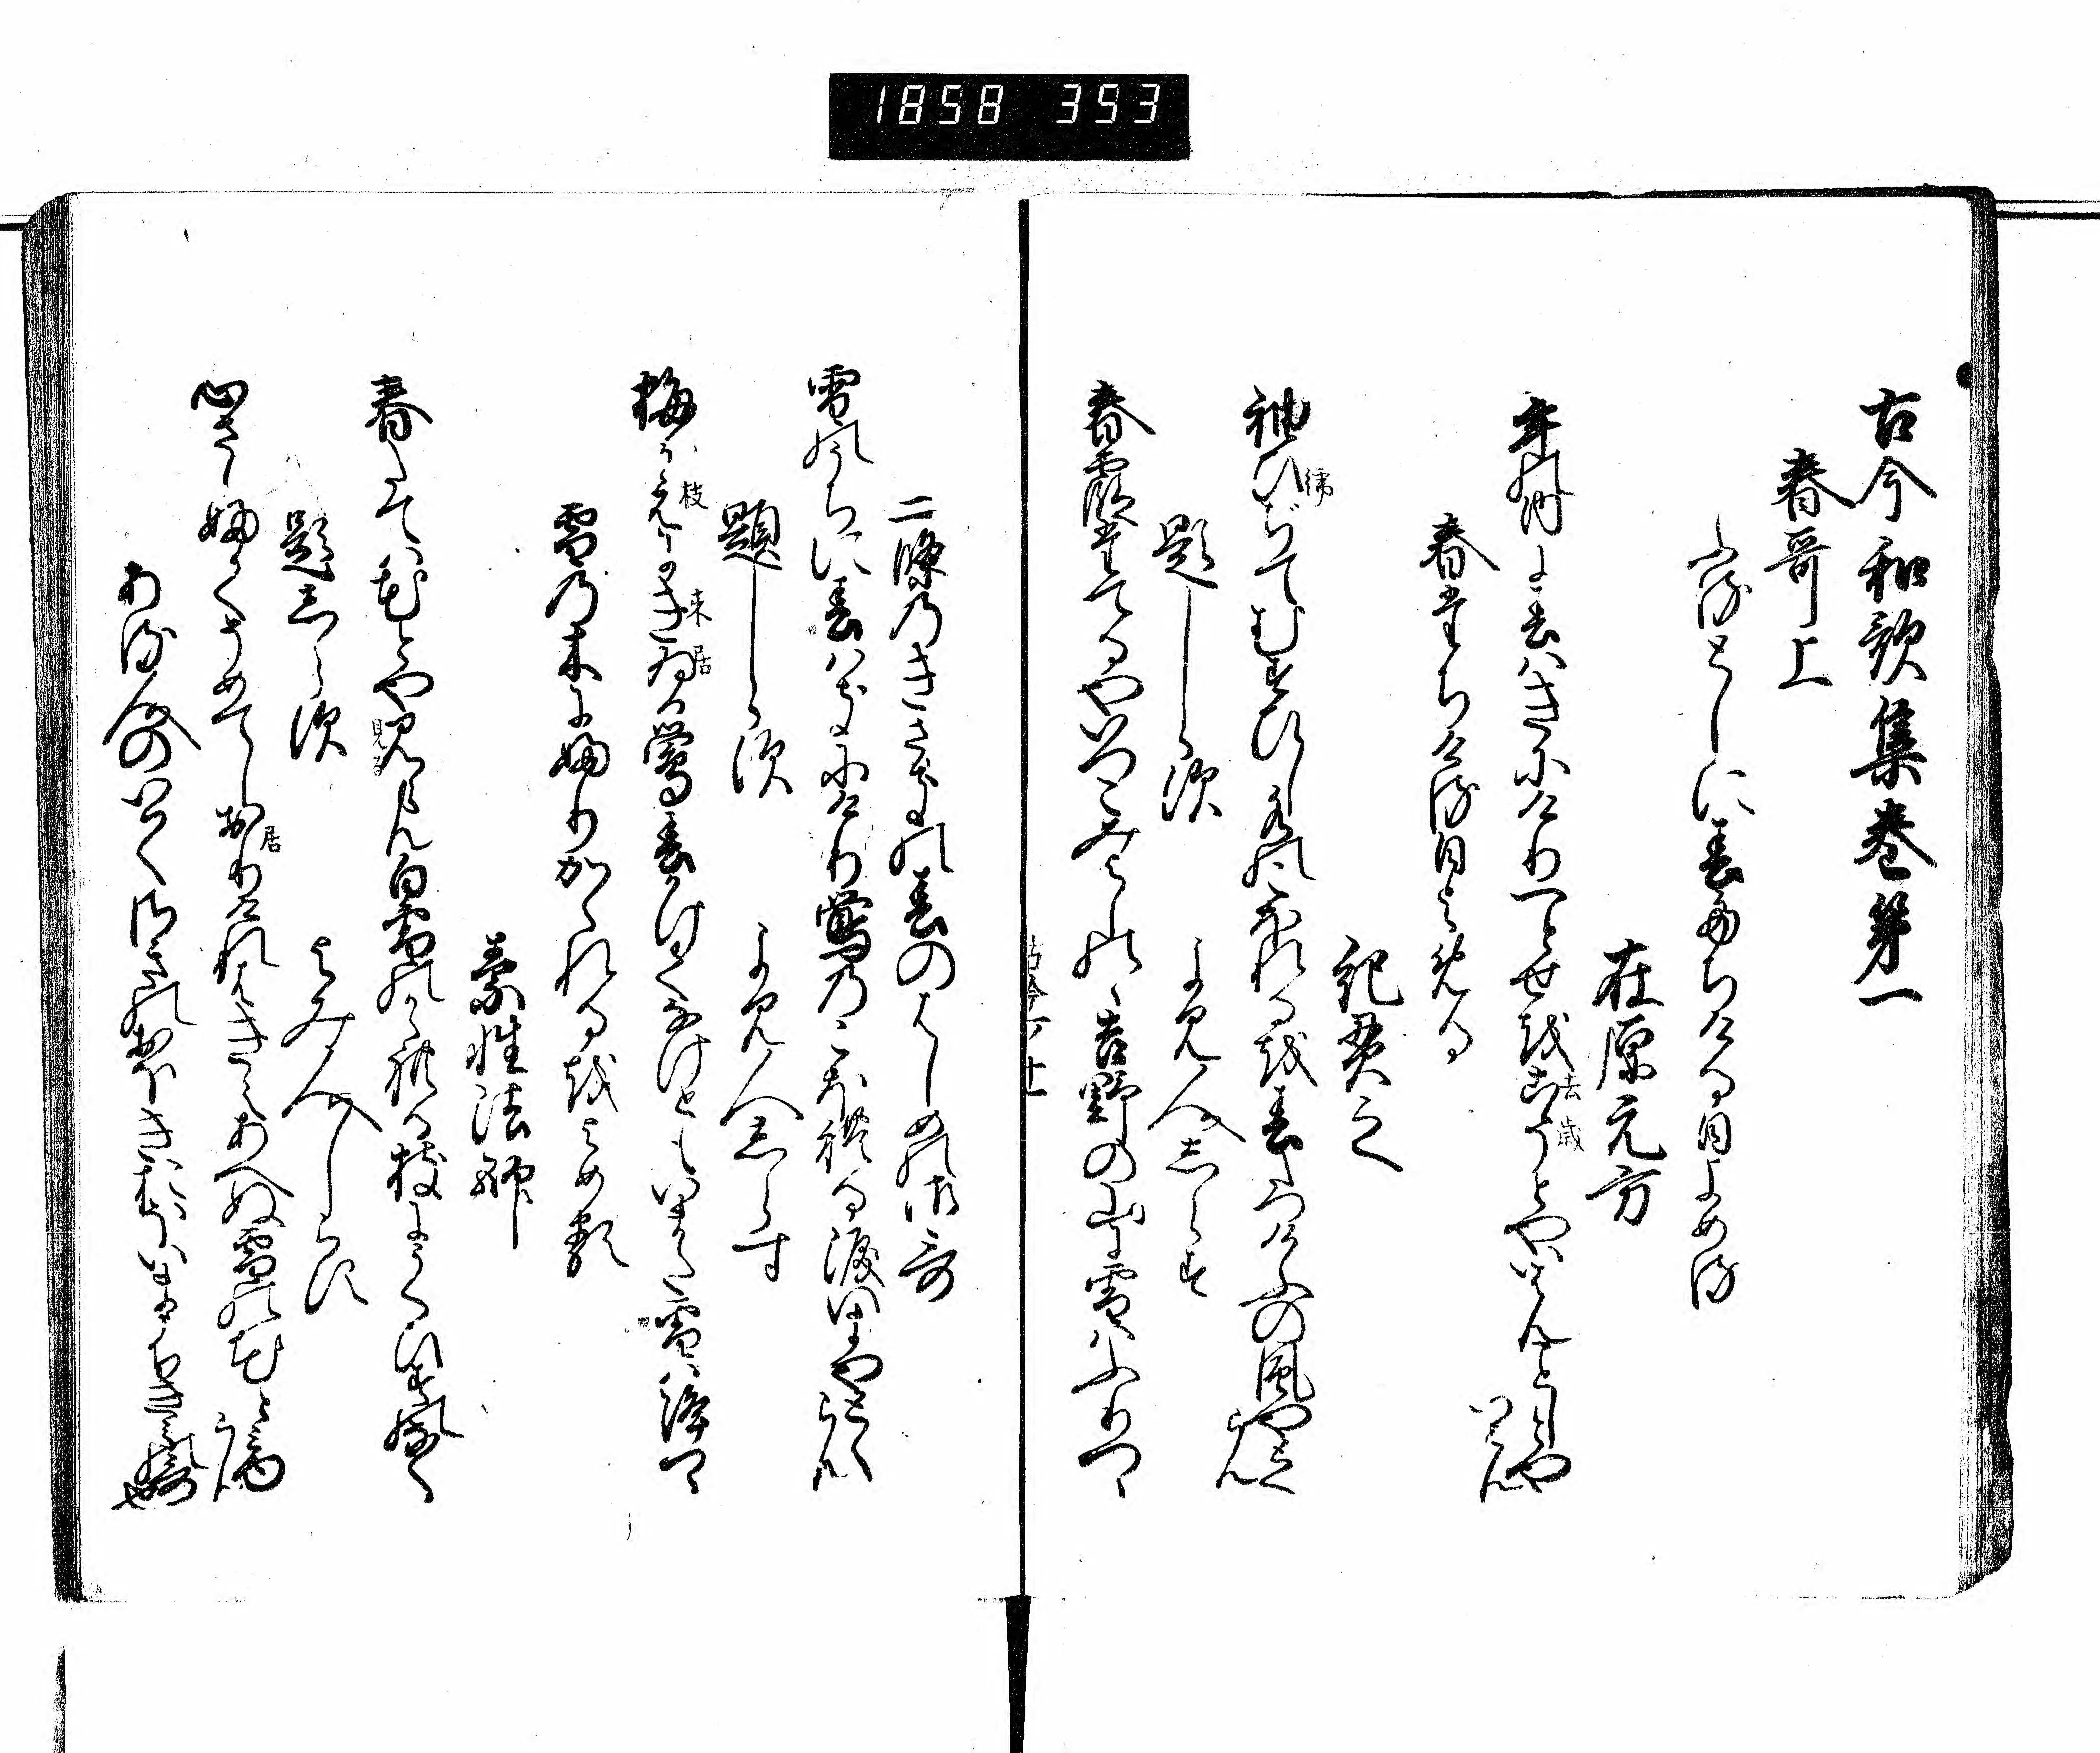 1858 353
古今和歌集巻第一
春哥上
ふるとしに春たちける日よめる
在原元方
年の内に春はきにけり一とせをこそとやいはんことしとや
いはん
去歳
春たちける日よめる
紀貫之
袖ひぢてむすひし水のこほれるを春たつけふの風やとく
らん
題しらす
よみ人しらす
春霞たてるやいつこみよしのゝ吉野の山に雪はふりつゝ
二條のきさきの春のはしめの御哥
雪の内に春はきにけり鶯のこほれる涙田今やとく
らん
題しらす
よみ人しらす
梅かえにきゐる鶯春かけてなけともいまた雪は降つゝ
枝
来居
雪の木にふりかゝれるをよめる
素性法師
春たては花とや見らん白雪のかゝれる枝にうくひすの鳴
見る
題しらす
よみ人しらす
心さしふかくそめてしおりけれはきえあへぬ雪の花と見
らん
居
ある人のいはくさきのおほきおほいまうちきみの哥
也